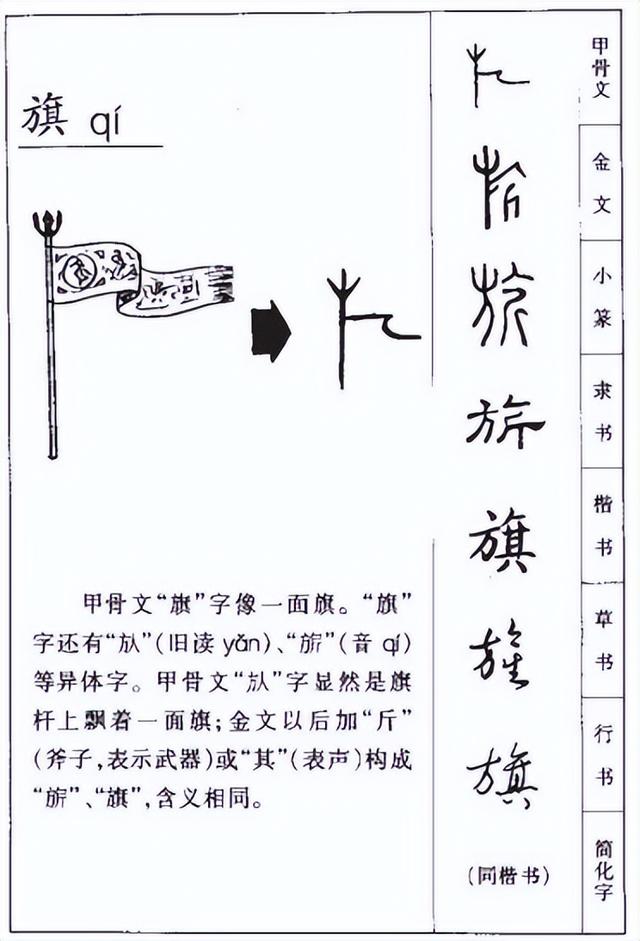 旗 qí
甲骨文“旗”字像一面旗。“旗”
字还有“㫃”(旧读 yǎn)、“旂”(音 qí)
等异体字。甲骨文“㫃”字显然是旗
杆上飘着一面旗;金文以后加“斤”
(斧子,表示武器)或“其”(表声)构成
“旂”、“旗”,含义相同。
㫃
甲骨文
旂
金文
旂
小篆
旂
隶书
旗
楷书
旗
草书
旗
行书
(同楷书)
简化字